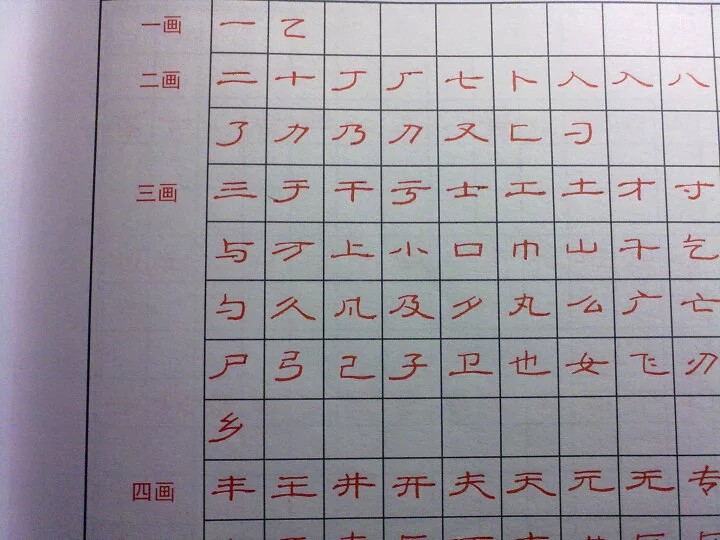 一画 一 乙
二画 二 十 丁 厂 七 卜 人 入 八
了 力 乃 刀 又 匕 刁
三画 三 于 干 亏 士 工 土 才 寸
与 万 上 小 口 巾 山 千 乞
勺 久 凡 及 夕 丸 么 广 亡
尸 弓 己 子 卫 也 女 飞 刃
乡
四画 丰 王 井 开 夫 天 元 无 专